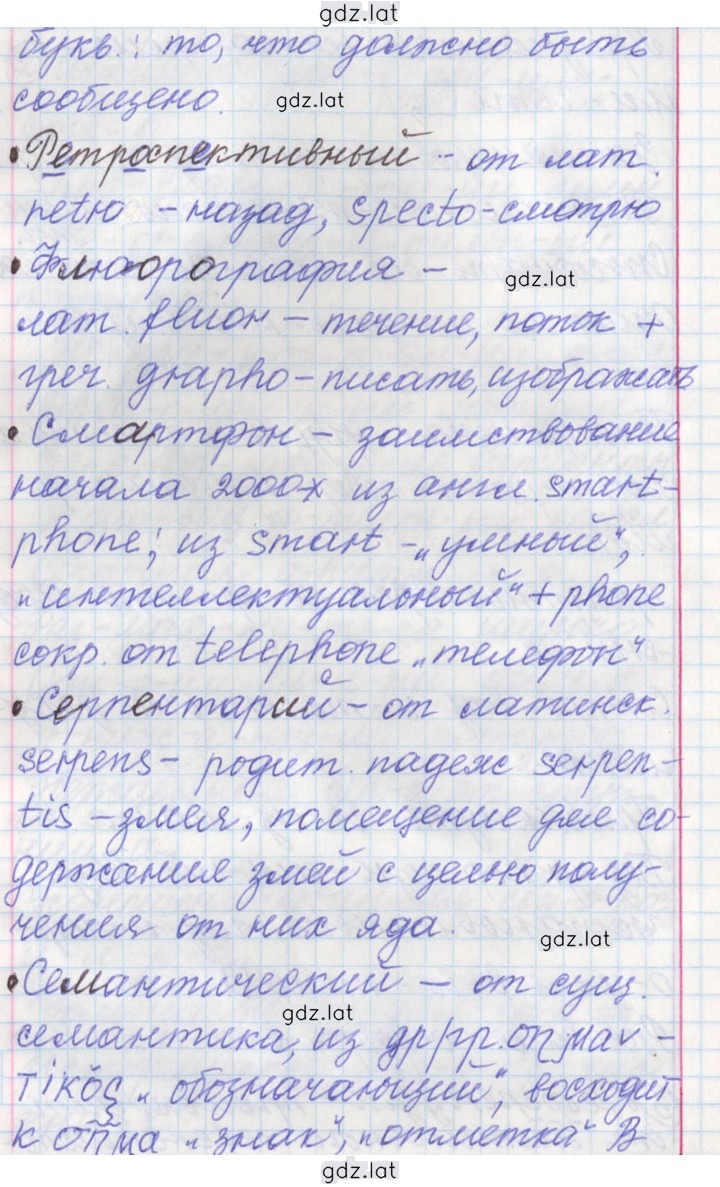 gdz.lat
букв.: то, что должно быть
сообщено. gdz.lat
• Ретроспективный - от лат.
retro - назад, specto - смотрю
• Флюорография - gdz.lat
лат. fluor - течение, поток +
греч. grapho - писать, изображать
• Смартфон - заимствование
начала 2000х из англ. smart-
phone; из smart - „умный“,
„интеллектуальный“ + phone
сокр. от telephone „телефон“
• Серпентарий - от латинск.
serpens - родит. падеж serpen-
tis - змея, помещение для со-
держания змей с целью полу-
чения от них яда.
gdz.lat
• Семантический - от сущ.
gdz.lat
семантика, из др/гр. σημαν-
τικός „обозначающий“, восходит
к σῆμα „знак“, „отметка“ В
gdz.lat